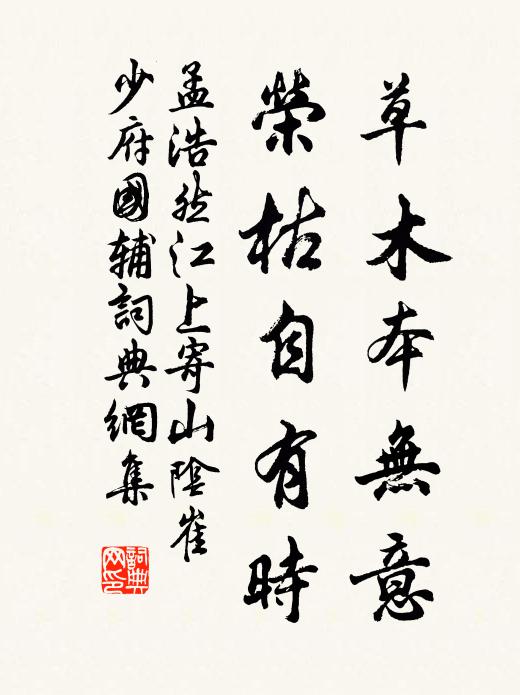 草木本無意
榮枯自有時
孟浩然江上寄山陰崔
少府國輔詞典網集
詞典网印